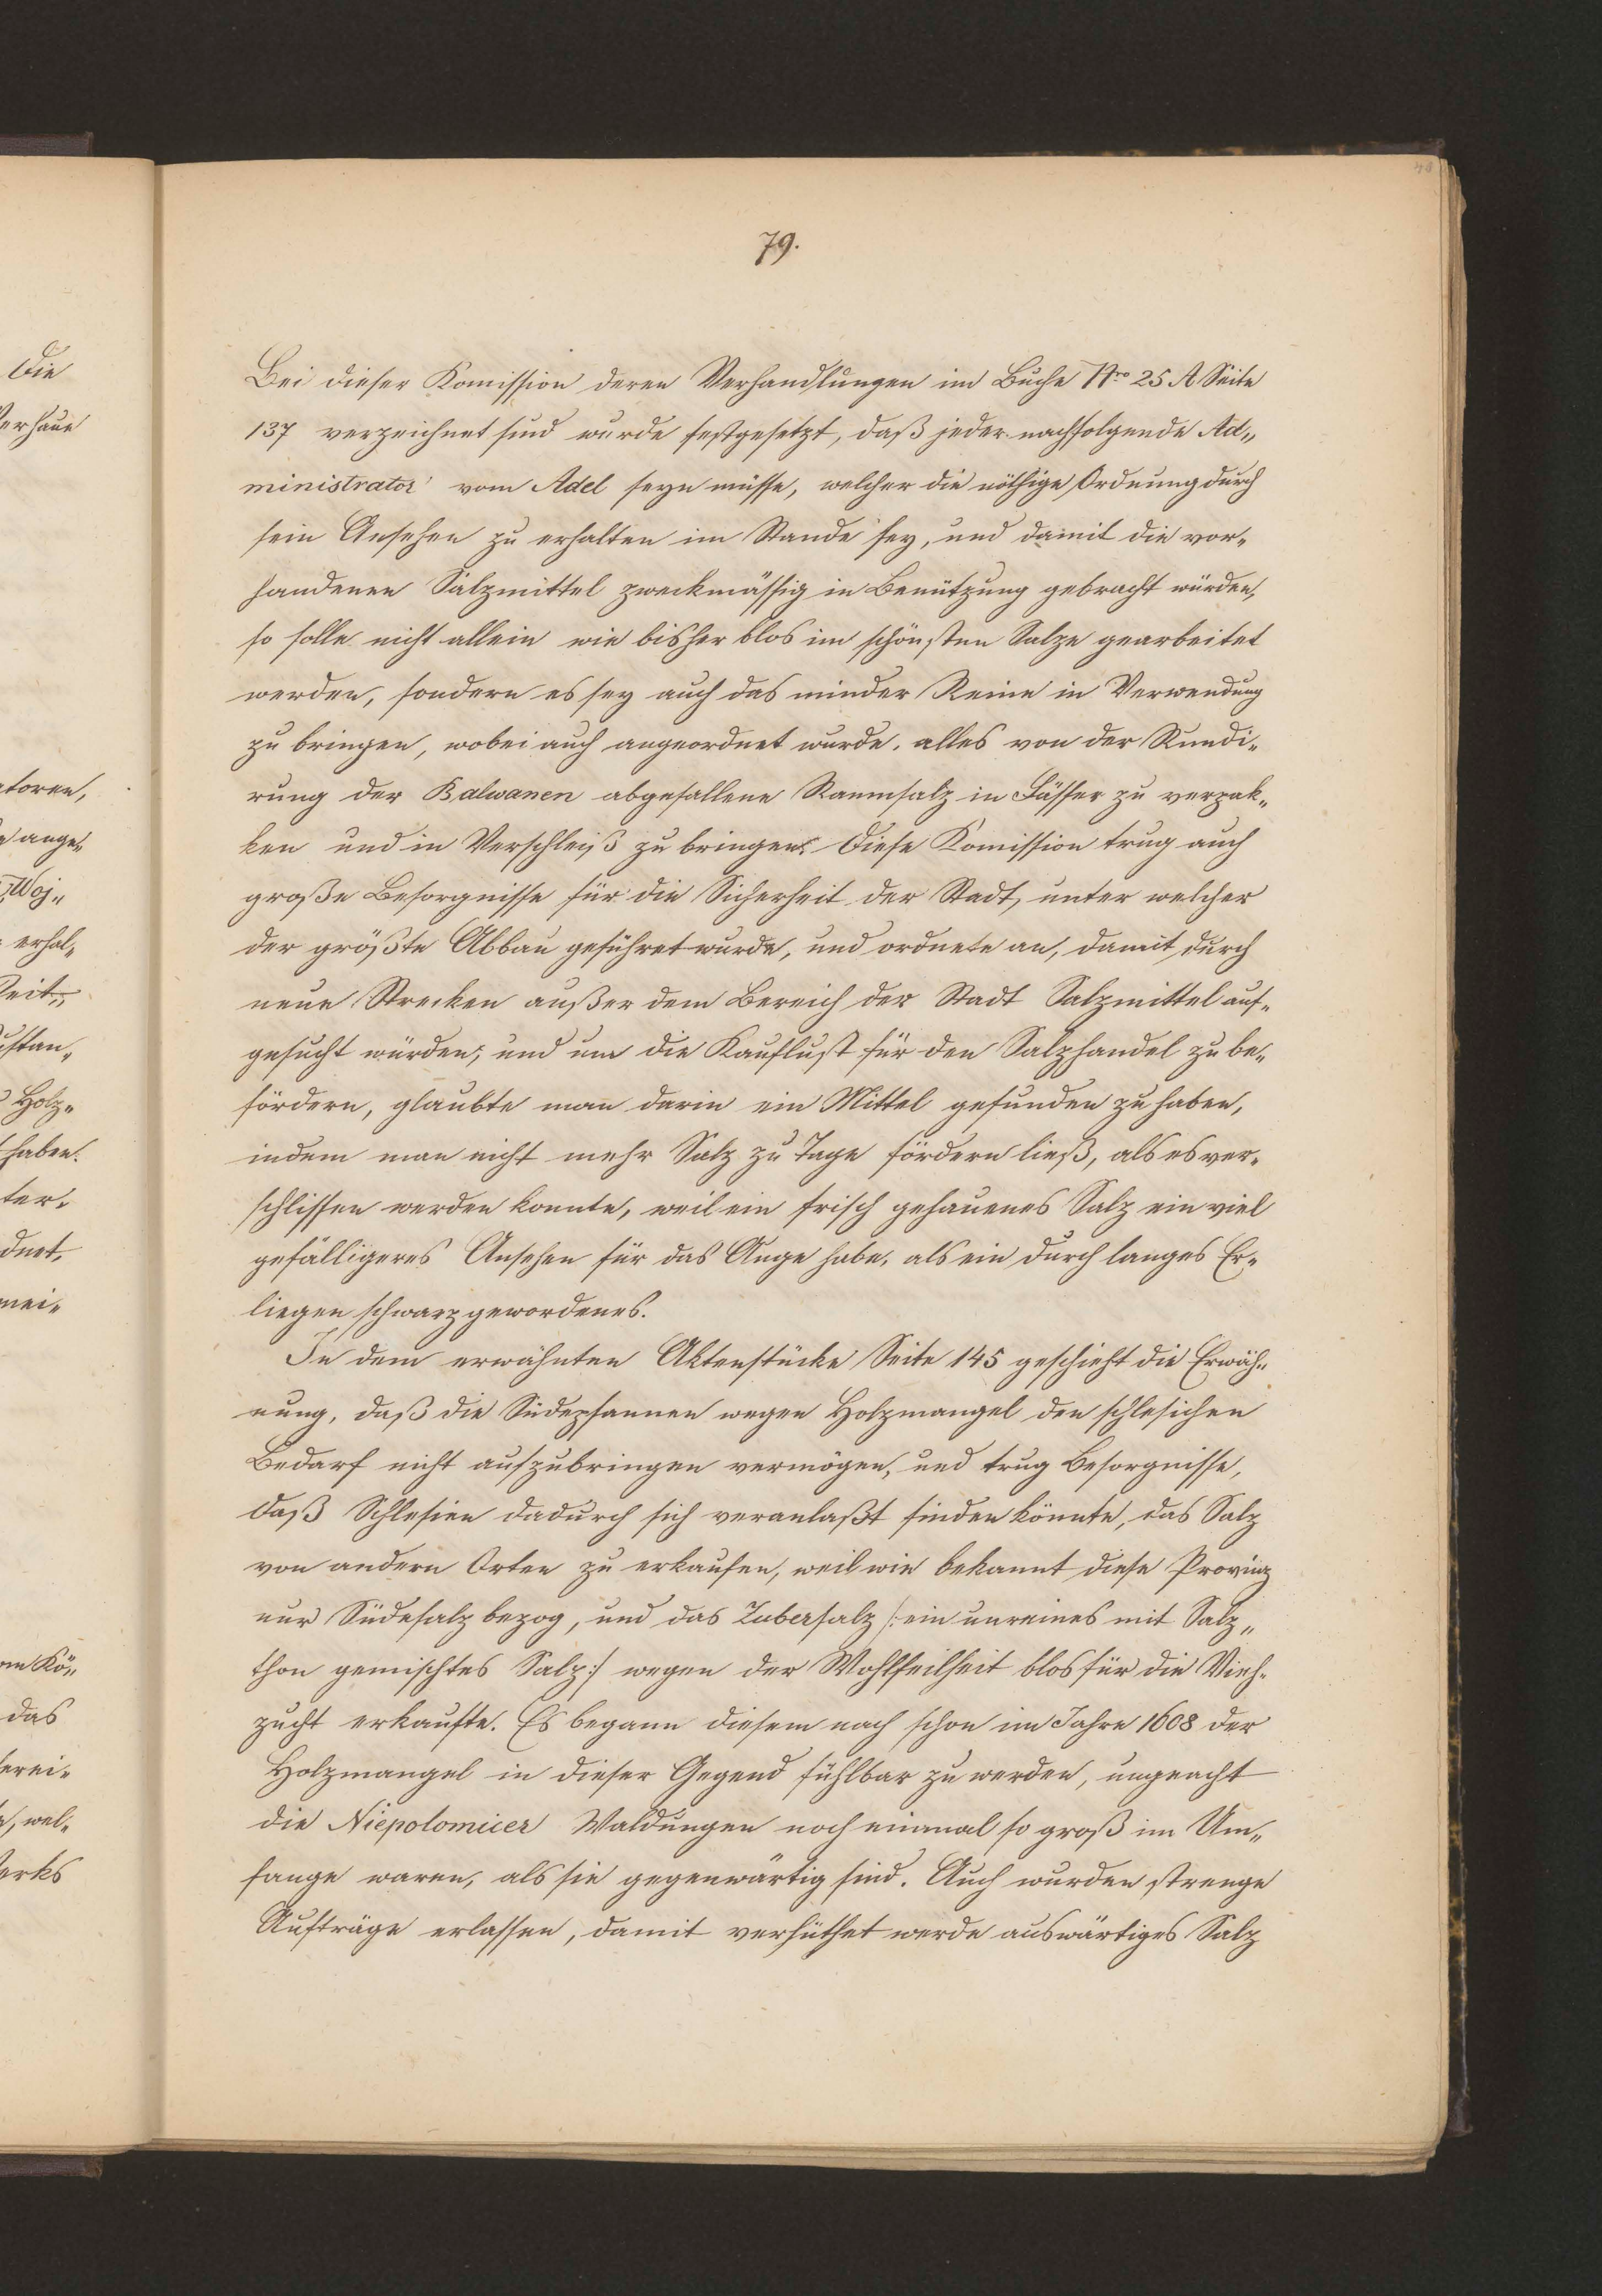 79.
Bei dieser Komission deren Verhandlungen im Buche Nro 25 A Seite
137 verzeichnet sind wurde festgesetzt, daß jeder nachfolgende Ad„
ministrator vom Adel seyn müsse, welcher die nöthige Ordnung durch
sein Ansehen zu erhalten im Stande sey, und damit die vor„
handenen Salzmittel zweckmässig in Benützung gebracht würden,
so solle nicht allein wie bisher blos im schönsten Salze gearbeitet
werden, sondern es sey auch das minder Reine in Verwendung
zu bringen, wobei auch angeordnet wurde, alles von der Rundi„
rung der Balwanen abgefallene Raumsalz in Fässer zu verpak„
ken und in Verschleiß zu bringen. Diese Komission trug auch
große Besorgnisse für die Sicherheit der Stadt, unter welcher
der größte Abbau geführet wurde, und ordnete an, damit durch
neue Strecken außer dem Bereich der Stadt Salzmittel auf„
gesucht würden; und um die Kauflust für den Salzhandel zu be„
fördern, glaubte man darin ein Mittel gefunden zu haben,
indem man nicht mehr Salz zu Tage fördern ließ, als es ver„
schlissen werden konnte, weil ein frisch gehauenes Salz ein viel
gefälligeres Ansehen für das Auge habe, als ein durch langes Er„
liegen schwarz gewordenes.
In dem erwähnten Aktenstücke Seite 145 geschieht die Erwäh„
nung, daß die Südepfannen wegen Holzmangel den schlesichen
Bedarf nicht aufzubringen vermögen, und trug Besorgnisse,
daß Schlesien dadurch sich veranlaßt finden könnte, das Salz
von andern Orten zu erkaufen, weil wie bekannt diese Provinz
nur Südesalz bezog, und das Zubersalz /: ein unreines mit Salz„
thon gemischtes Salz :/ wegen der Wohlfeilheit blos für die Vieh„
zucht erkaufte. Es begann diesem nach schon im Jahre 1608 der
Holzmangel in dieser Gegend fühlbar zu werden, ungeacht
die Niepolomicer Waldungen noch einmal so groß im Um„
fange waren, als sie gegenwärtig sind. Auch wurden strenge
Aufträge erlassen, damit verhüthet werde auswärtiges Salz